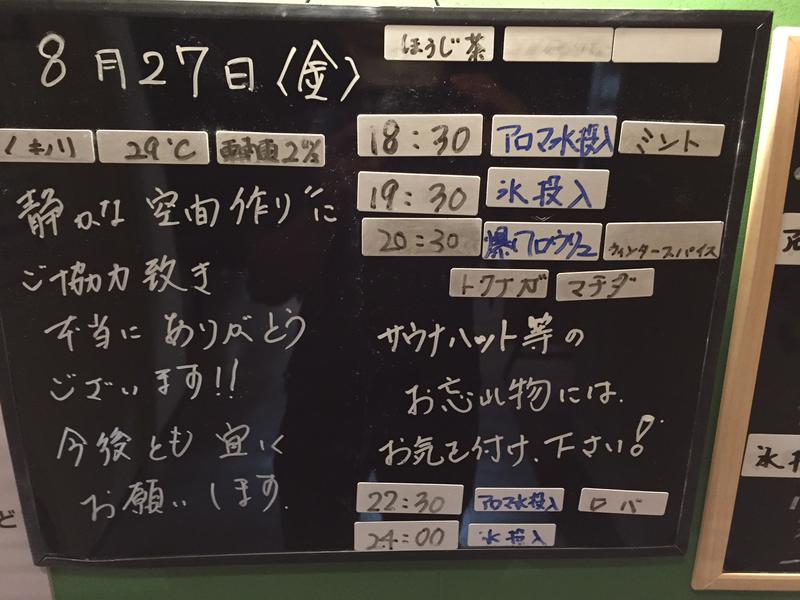 8月27日(金)
ほうじ茶
29℃
静かな空間作りに
ご協力致き
本当にありがとう
ございます!!
今後とも宜しく
お願いします.
18:30 アロマ水投入 ミント
19:30 氷投入
20:30 爆アロウリュ ウィンタースパイス
トクナガ マチダ
サウナハット等の
お忘れ物には.
お気を付け、下さい!
22:30 アロマ水投入 ロバ
24:00 氷投入
ど